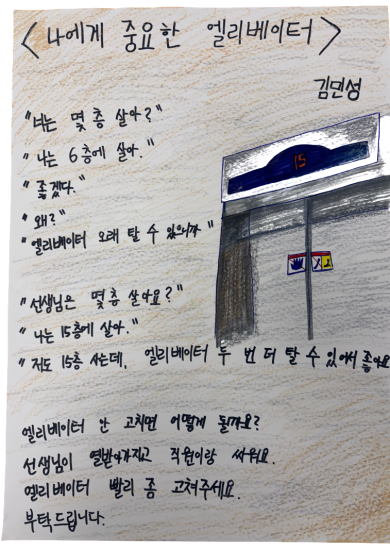 <나에게 중요한 엘리베이터>
김민성
"너는 몇 층 살아?"
"나는 6층에 살아."
"좋겠다."
"왜?"
"엘리베이터 오래 탈 수 있으니까"
15
"선생님은 몇층 살아요?"
"나는 15층에 살아."
"저도 15층 사는데, 엘리베이터 두 번 더 탈 수 있어서 좋아요
엘리베이터 안 고치면 어떻게 될까요?
선생님이 열받아가지고 직원이랑 싸워요.
엘리베이터 빨리 좀 고쳐주세요.
부탁드립니다.